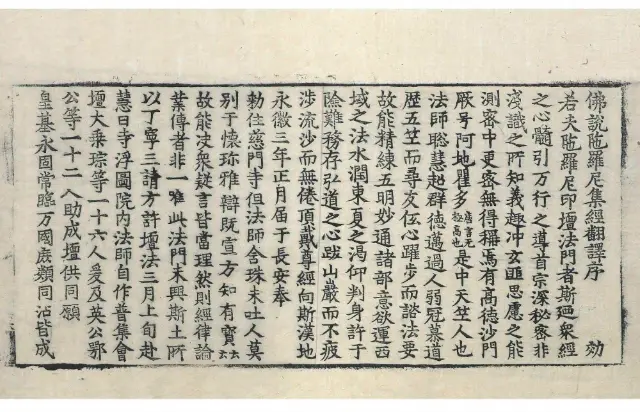 佛說陁羅尼集經翻譯序 効
若夫陁羅尼印壇法門者斯迺衆經
之心髓引万行之導首宗深秘密非
淺識之所知義趣沖玄匪思慮之能
測密中更密無得稱焉有髙德沙門
厥号阿地瞿多唐言無極髙也是中天竺人也
法師聦慧超群德邁過人弱冠慕道
歷五竺而尋友伍心躍步而諮法要
故能精練五明妙通諸部意欲運西
域之法水潤東夏之渴仰判身許于
險難務存弘道之心跋山巖而不疲
涉流沙而無倦頂戴尊經向斯漢地
永徽三年正月届于長安奉
勅住慈門寺但法師含珠未吐人莫
别于懷珎雅辯既宣方知有寶
故能决衆疑言皆當理然則經律論
業傳者非一唯此法門未興斯土所
以丁寧三請方許壇法三月上旬赴
慧日寺浮圖院内法師自作普集會
壇大乘琮等一十六人爰及英公鄂
公等一十二人助成壇供同願
皇基永固常臨万國庶類同沾皆成